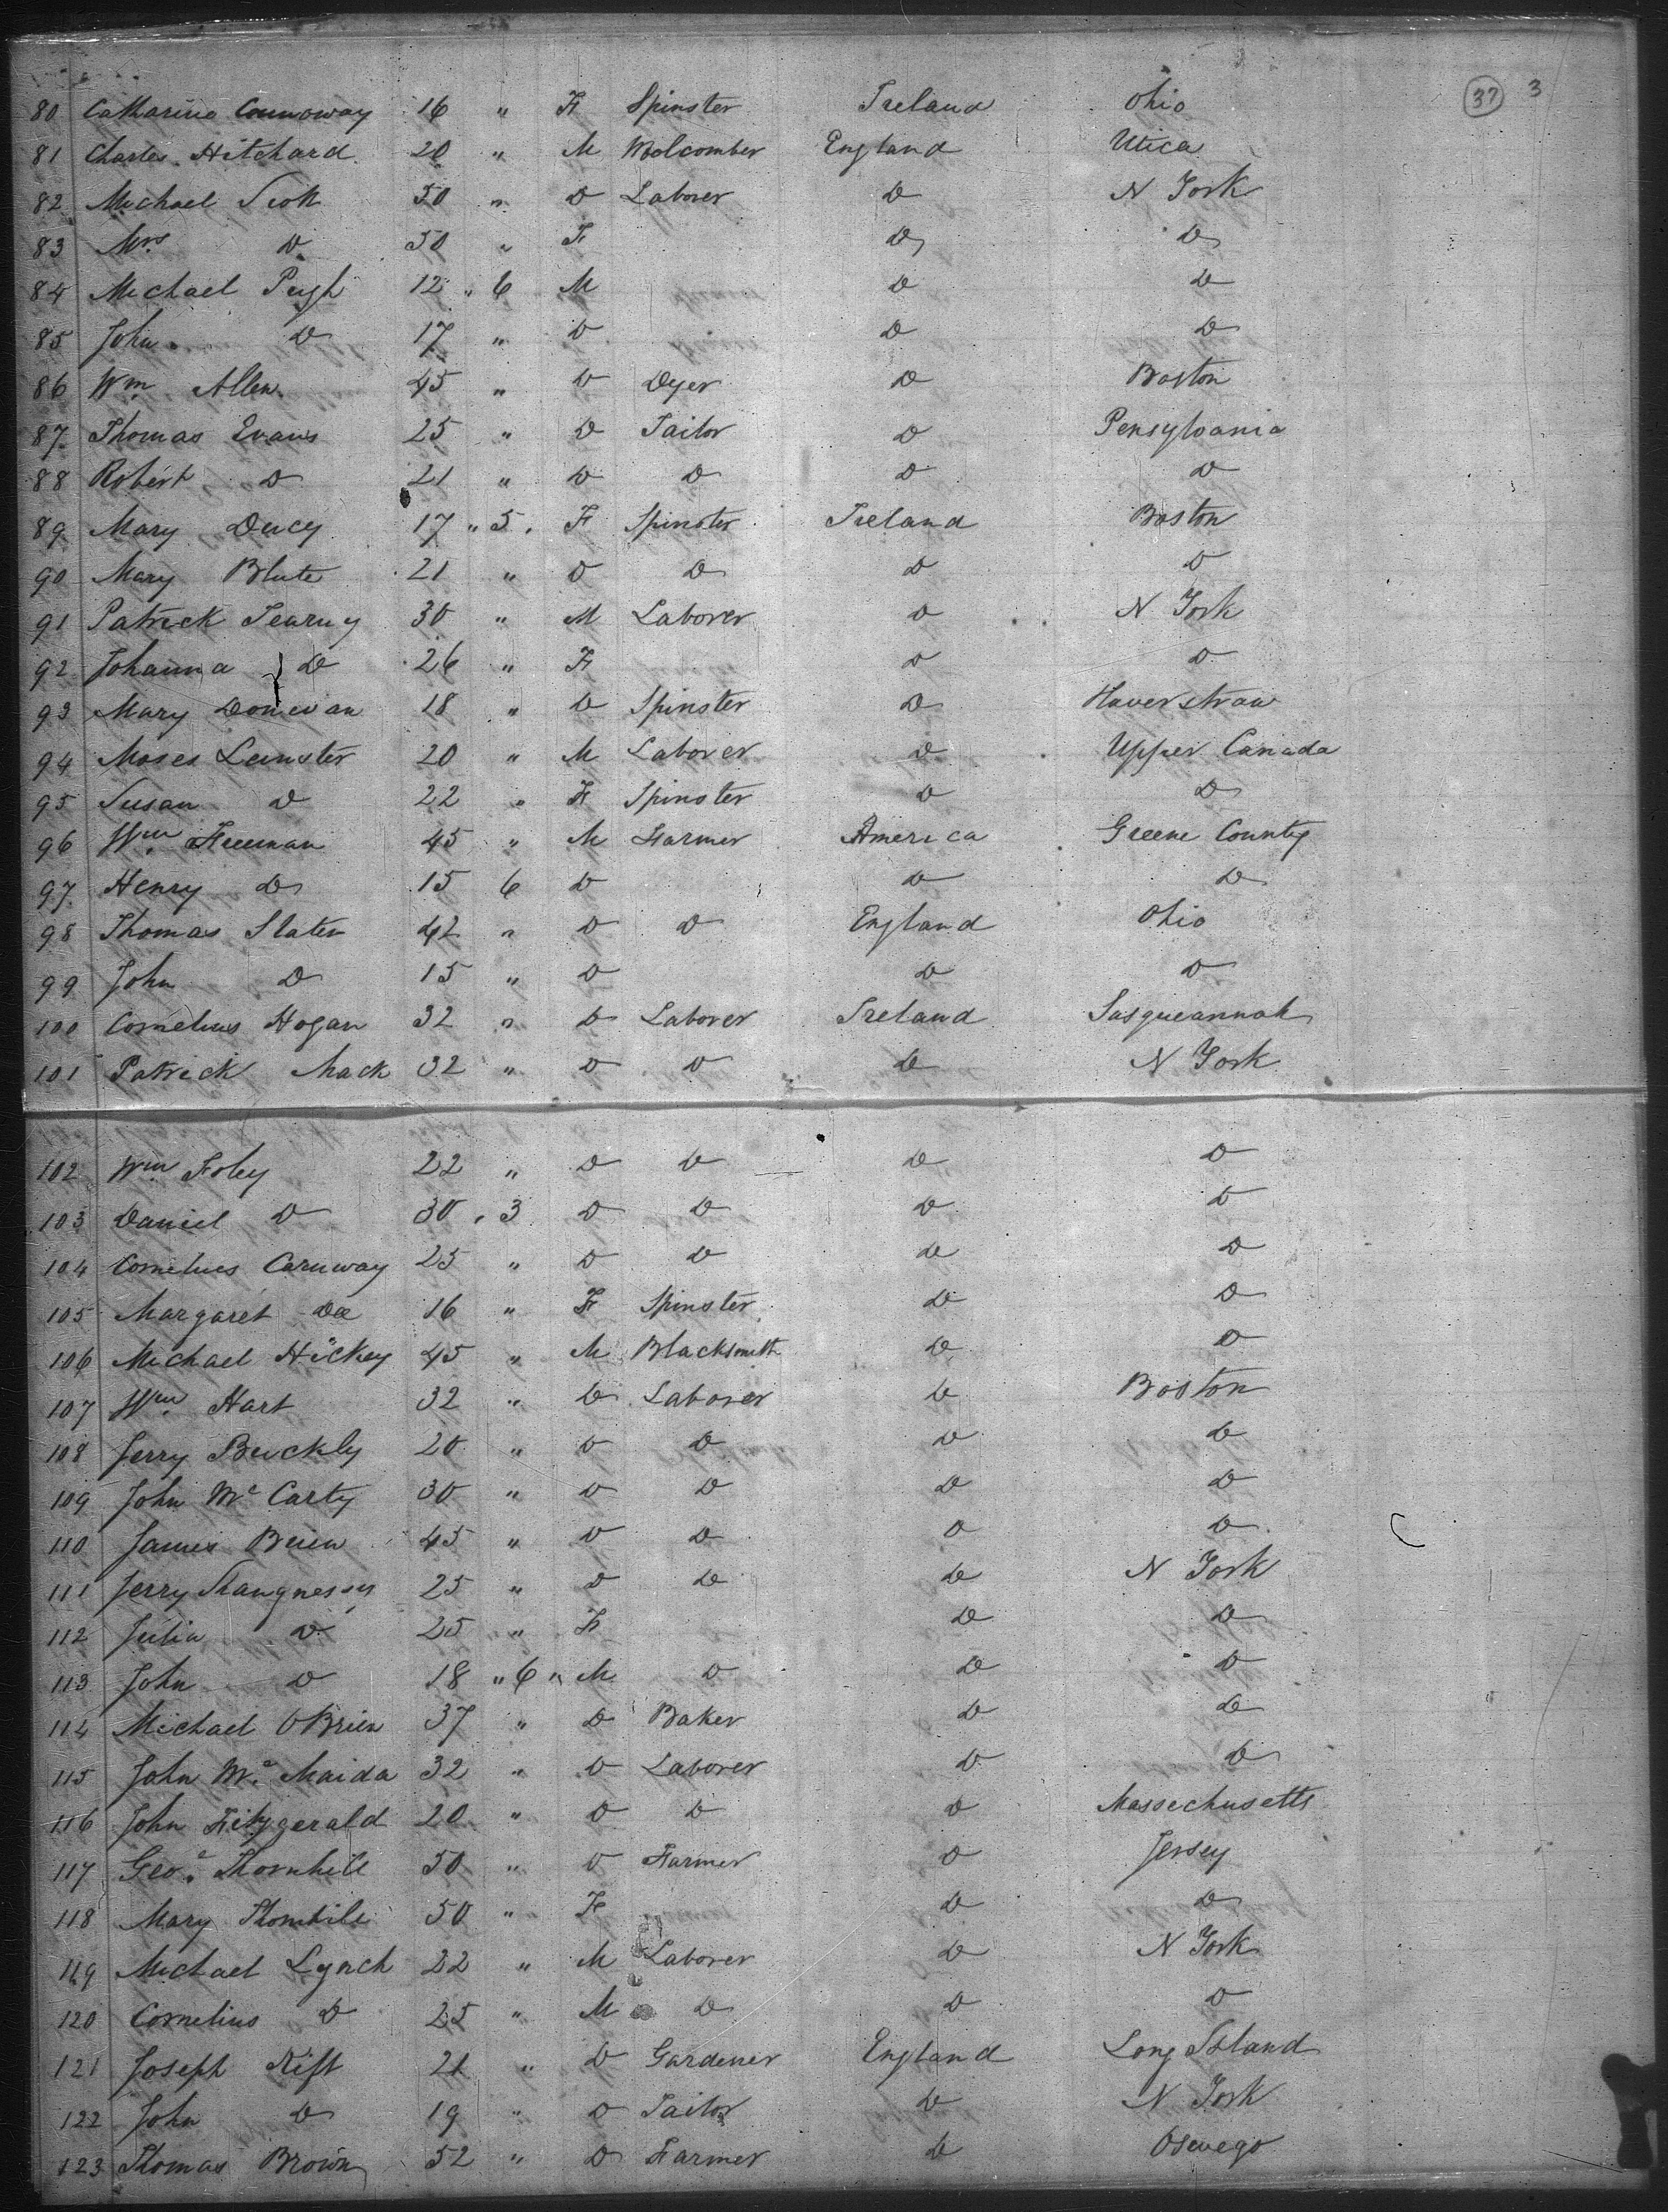 37 3
80 Catharine Connoway 16 " F Spinster Ireland Ohio
81 Charles Hitchard 20 " M Wolcomber England Utica
82 Michael Scott 50 " D Laborer D N York
83 Mrs D 50 " F D D
84 Michael Pugh 12 " 6 M D D
85 John D 17 " D D D
86 Wm Allen 45 " D Dyer D Boston
87 Thomas Evans 25 " D Tailor D Pensylvania
88 Robert D 21 " D D D D
89 Mary Ducy 17 " 5 " F Spinster Ireland Boston
90 Mary Blute 21 " D D D D
91 Patrick Tearny 30 " M Laborer D N York
92 Johanna } D 26 " F D D
93 Mary Donevan 18 " D Spinster D Haverstraw
94 Moses Leinster 20 " M Laborer D Upper Canada
95 Susan D 22 " F Spinster D D
96 Wm Freeman 45 " M Farmer America Greene County
97 Henry D 15 6 D D D
98 Thomas Slater 42 " D D England Ohio
99 John D 15 " D D D
100 Cornelius Hogan 32 " D Laborer Ireland Susqueannah
101 Patrick Mack 32 " D D D N York
102 Wm Foley 22 " D D D D
103 Daniel D 30 " 3 D D D D
104 Cornelius Carnway 25 " D D D D
105 Margaret Dee 16 " F Spinster D D
106 Michael Hickey 45 " M Blacksmith D D
107 Wm Hart 32 " D Laborer D Boston
108 Jerry Buckly 20 " D D D D
109 John Mc Carty 30 " D D D D
110 James Brien 45 " D D D D
111 Jerry 25 " D D D N York
112 Julia D 25 " F D D
113 John D 18 " 6 " M D D D
114 Michael OBrien 37 " D Baker D D
115 John Mc Maida 32 " D Laborer D D
116 John Fitzgerald 20 " D D D Massechusetts
117 Geoe Thornhill 50 " D Farmer D Jersey
118 Mary Thornhill 50 " F D D
119 Michael Lynch 22 " M Laborer D N York
120 Cornelius D 25 " M D D D
121 Joseph Kift 21 " D Gardener England Long Island
122 John D 19 " D Tailor D N York
123 Thomas Brown 52 " D Farmer D Oswego